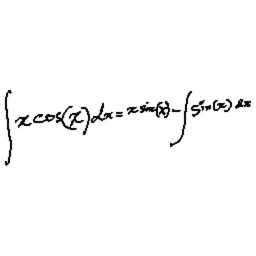 ∫ x cos(x) dx = x sin(x) - ∫ sin(x) dx